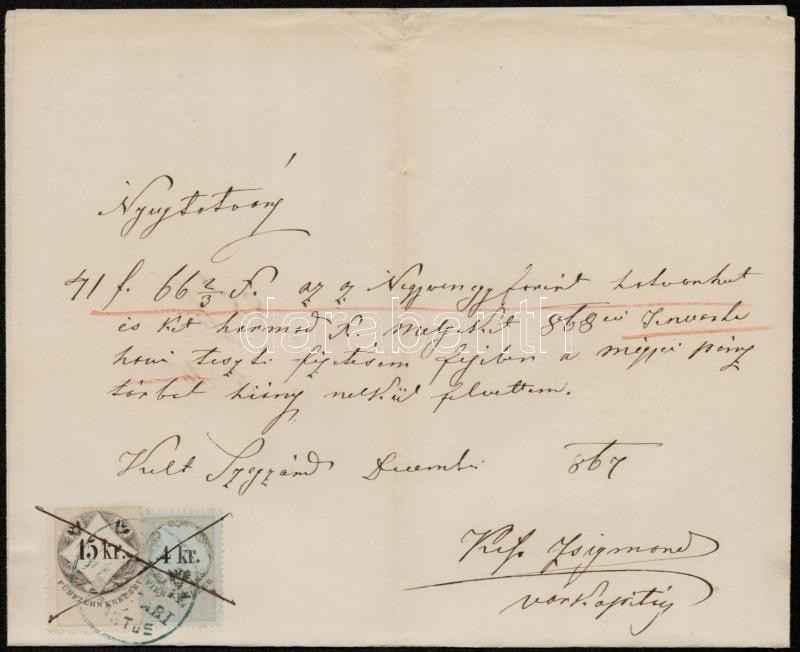 Nyugtatvány
41 f. 66 2/3 k. az az Negyvenegy forint hatvanhat
és két harmad k. melyeket 868 évi Januarius
havi tiszti fizetésem fejében a megyei pénz
tárbol hiány nelkül felvettem.
Kelt Szegzárd December 867
Kiss Zsigmond
várkapitány
darabanth
15 kr.
FÜNFZEHN KREUZER
4 kr.
VIER KREUZER